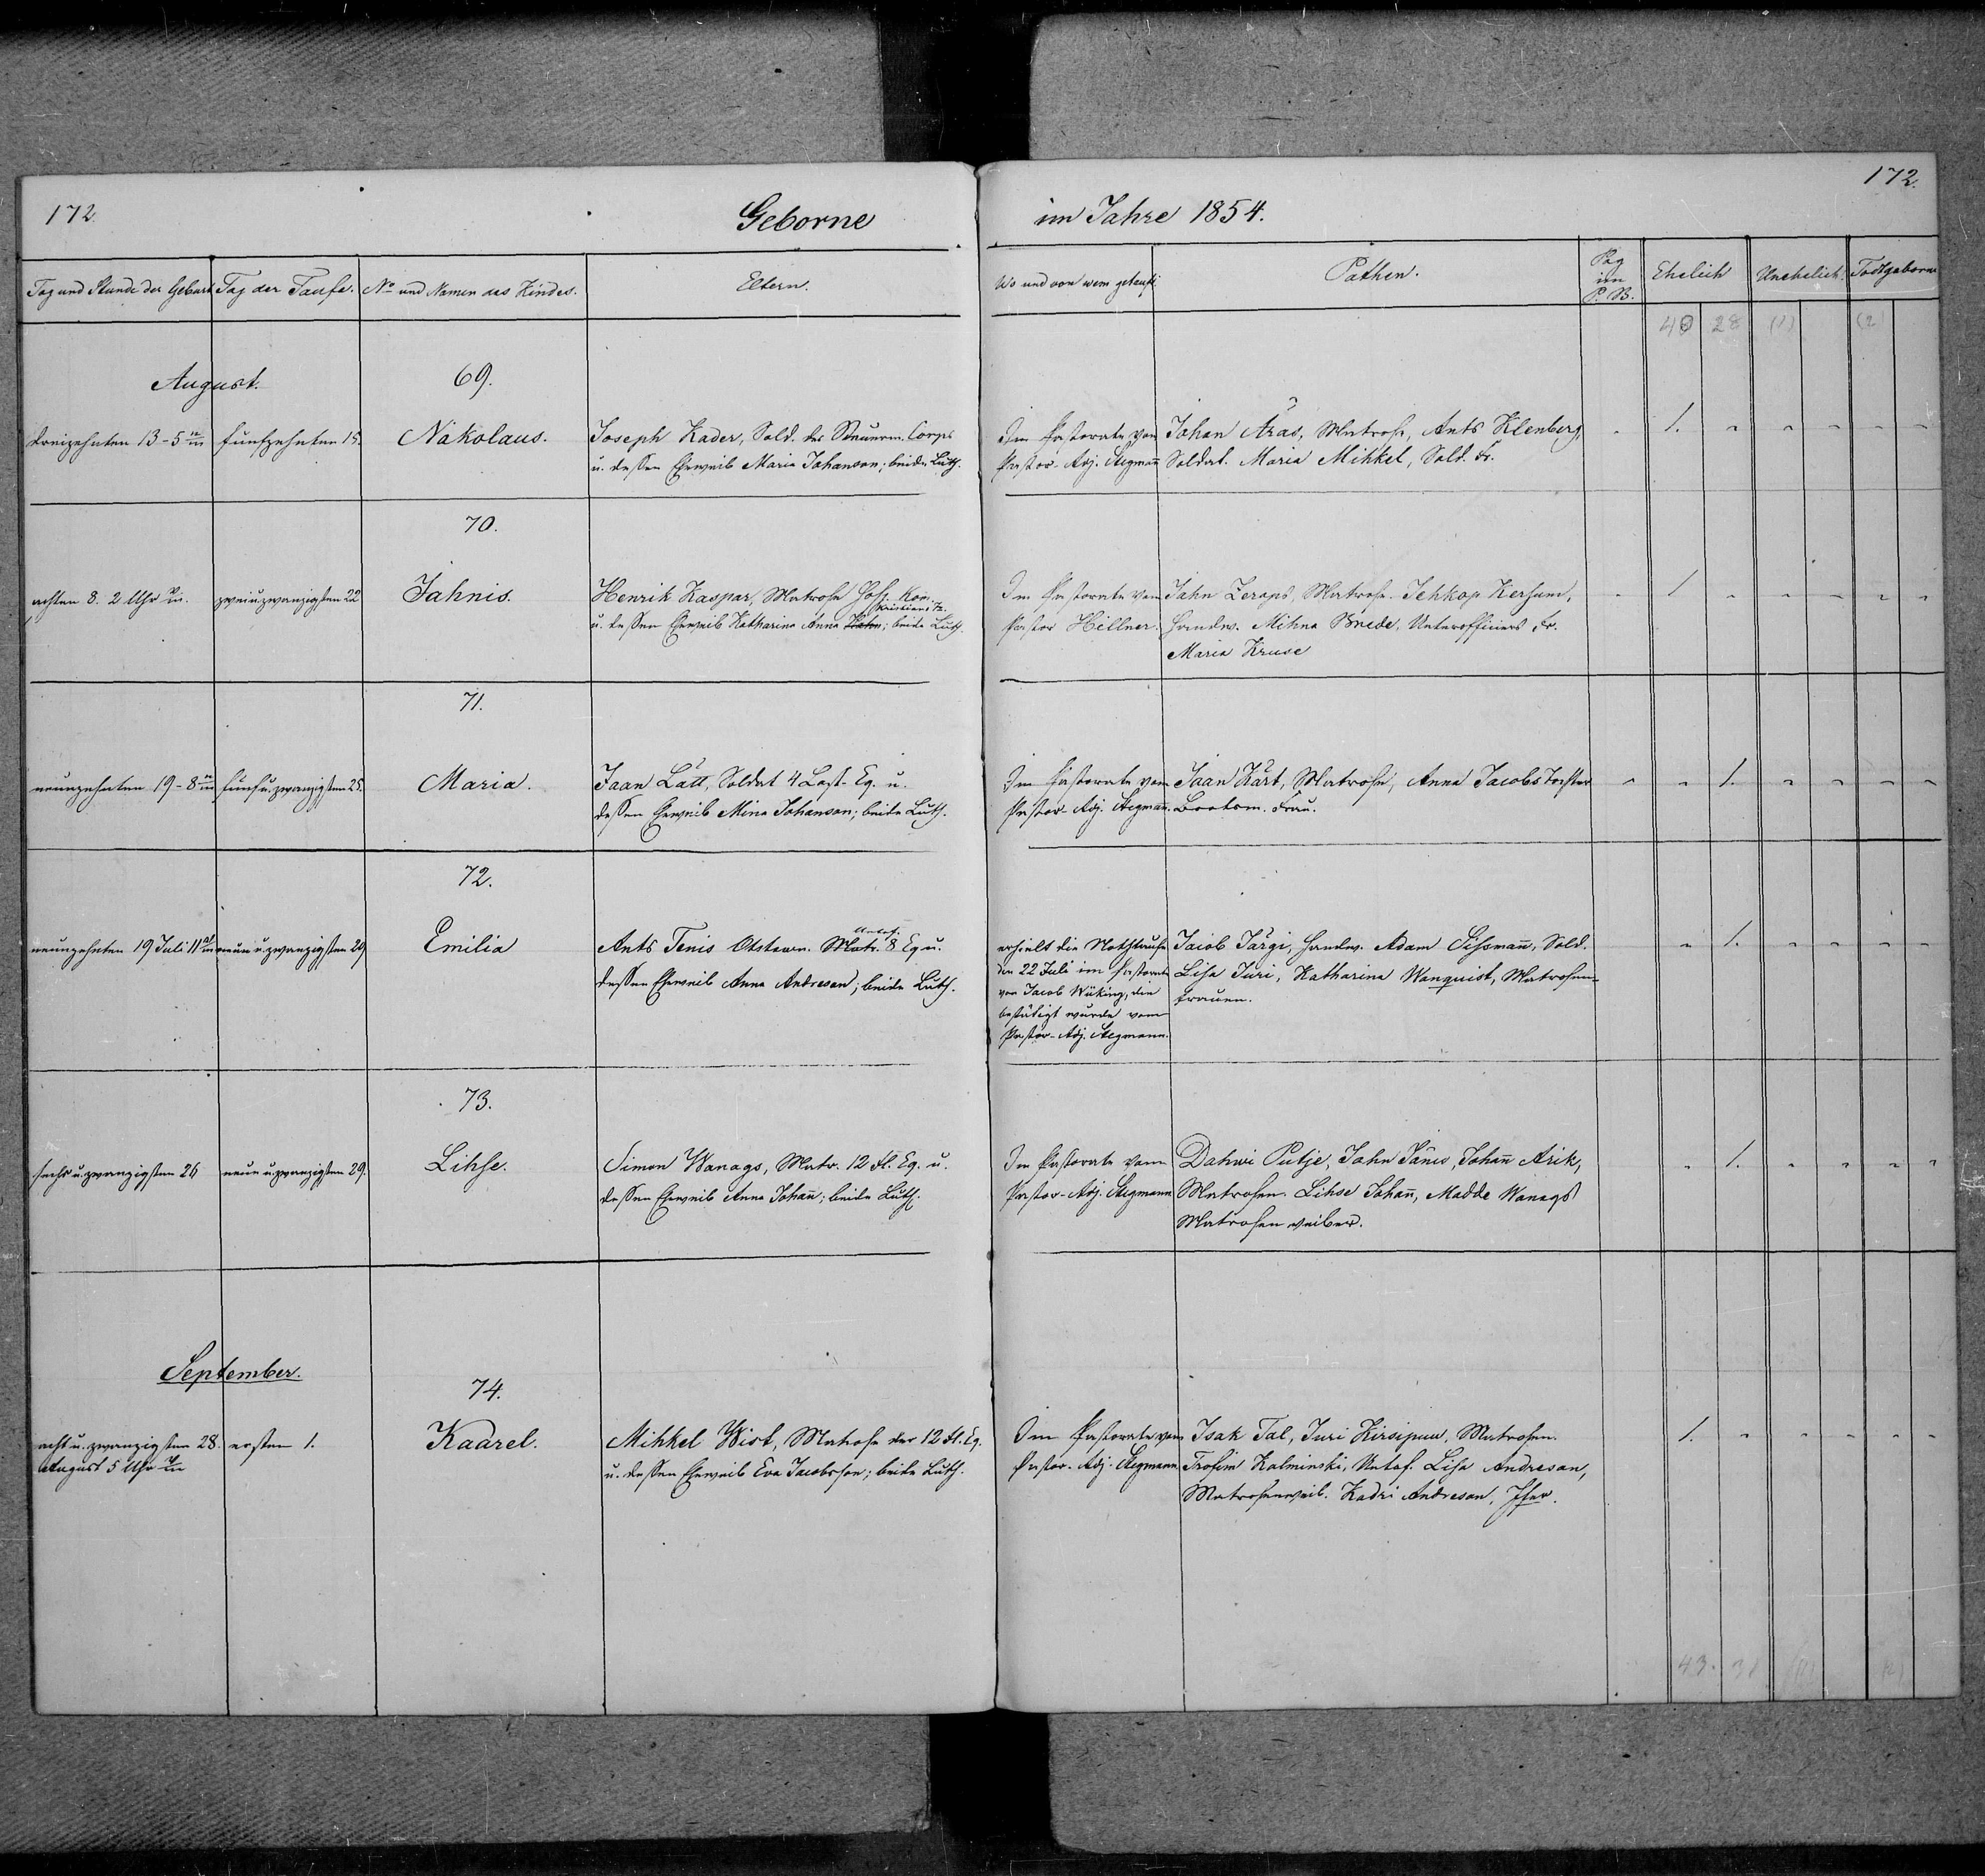 172.
172.
Geborne
im Jahre 1854.
Tag und Stunde der Geburt
Tag der Taufe.
No und Namen des Kindes.
Eltern.
Wo und von wem getauft
Pathen.
Pag
im
P. B.
Ehelich
Unehelich.
Todtgeborne
40 28 (1) (2)
August.
69.
dreizehnten 13 - 5
fünfzehnten 15.
Nikolaus.
Joseph Kader, Sold. des Steuerm. Corps
u. dessen Eheweib Maria Johanson; beide Luth.
Im Pastorate von
Pastor-Adj. Stegmann
Johan Äras, Matrose, Ants Klenberg,
Soldat. Maria Mihkel, Sold. Fr.
1.
70.
achten 8. 2 Uhr
zweiu.zwanzigsten 22
Jahnis.
Henrik Kaspar, Matrose
Kristians To.
u. dessen Eheweib Katharina Anna; beide Luth.
Im Pastorate vom
Pastor Hillner.
Jahn Zerops, Matrose. Jehkop Kersum,
Handw. Mihna Brede, Unterofficiers Fr.
Maria Kruse
1
71.
neunzehnten 19 - 8
fünfu.zwanzigsten 25.
Maria.
Jaan Lätt, Soldat 4 Last-Eq. u.
dessen Eheweib Mina Johanson; beide Luth.
Im Pastorate vom
Pastor-Adj. Stegmann.
Jaan Kärt, Matrose, Anna Jacobs Tochter
Bootsm. Frau.
1.
72.
neunzehnten 19 Juli 11
neun u. zwanzigsten 29
Emilia
Untof.
Ants Tenis Otstawn. Matr. 8 Eq u.
dessen Eheweib Anna Andresen; beide Luth.
erhielt die Nothtaufe
den 22 Juli im Pastorate
von Jacob Wüking, die
bestätigt wurde vom
Pastor-Adj. Stegmann.
Jacob Järgi, Handw. Adam Sissmann, Sold.
Lisa Juri, Katharina Wanquist, Matrosen-
frauen.
1.
73.
sechs u. zwanzigsten 26
neun u. zwanzigsten 29.
Lihse.
Simon Wanags, Matr. 12 Fl. Eq. u.
dessen Eheweib Anna Johann; beide Luth.
Im Pastorate vom
Pastor-Adj. Stegmann
Dahwi Putje, Jahn Jänis, Johann Arik,
Matrosen. Lihse Johann, Madde Wanags
Matrosen weiber.
1.
September.
74.
acht u. zwanzigsten 28.
August 5 Uhr
ersten 1.
Kaarel.
Mihkel Wist, Matrose der 12 Fl. Eq.
u. dessen Eheweib Eva Jacobsson; beide Luth.
Im Pastorate vom
Pastor-Adj. Stegmann
Isak Tal, Juri Kirsipuu, Matrosen.
Trofim Kalminski, Untof. Lisa Andresan,
Matrosenweib. Kadri Andresan,
1.
43. 31